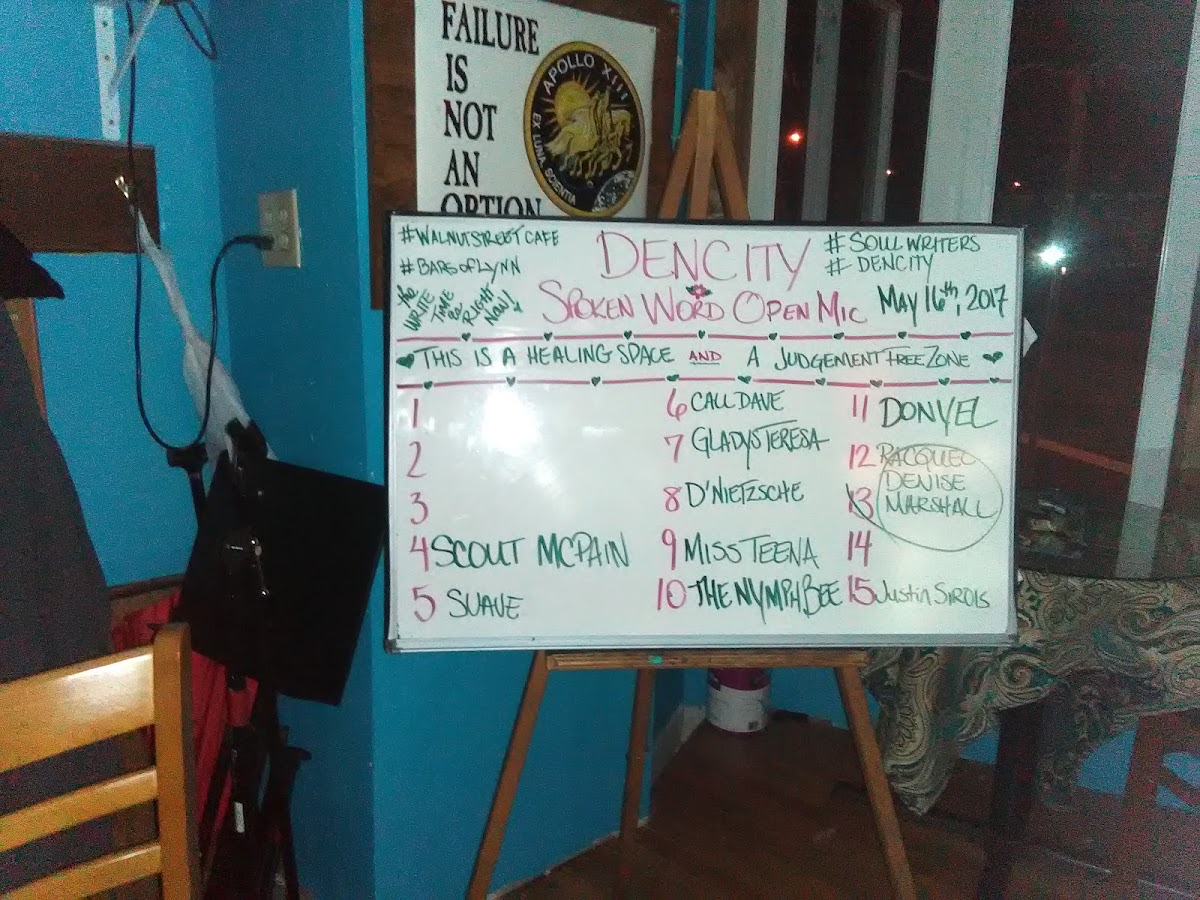 FAILURE
IS
NOT
AN
OPTION
APOLLO XIII
EX LUNA, SCIENTIA
#WALNUTSTREETCAFE
#BARSofLYNN
the
WRITE
TIME
is
RIGHT
NOW!
DENCITY
SPOKEN WORD OPEN MIC
#SOULWRITERS
#DENCITY
MAY 16th, 2017
THIS IS A HEALING SPACE AND A JUDGEMENT FREE ZONE
1
2
3
4 SCOUT MCPAIN
5 SUAVE
6 CALL DAVE
7 GLADYSTERESA
8 D'NIETZSCHE
9 MISS TEENA
10 THE NYMPH BEE
11 DONYEL
12 RACQUEL
DENISE
13 MARSHALL
14
15 Justin Sirois